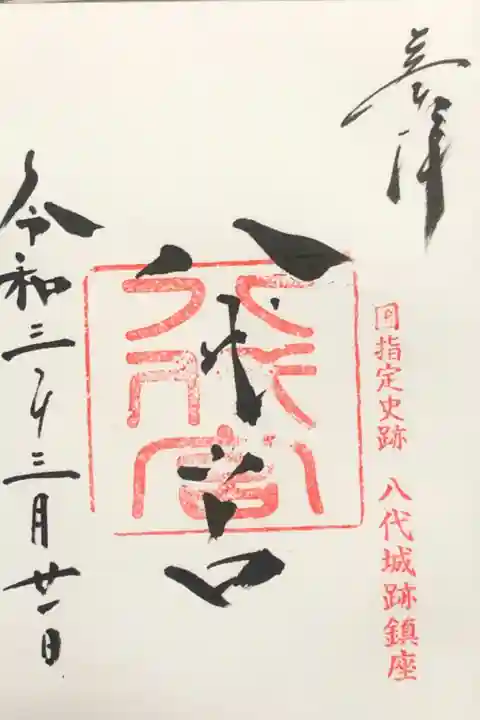 奉拝
国指定史跡 八代城跡鎮座
八代宮
令和三年三月廿一日